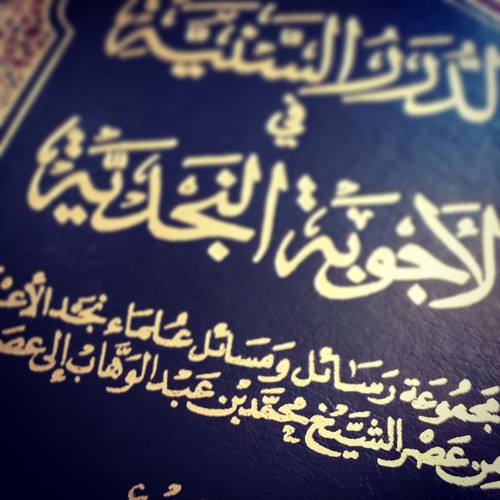 الدُّرَرُ السَّنِيَّة
في
الأَجْوِبَةِ النَّجْدِيَّة
مَجْمُوعَة رَسَائل وَمَسَائل عُلمَاء نَجْد الأَعْ
مِن عَصْر الشَّيْخ محَمَّد بْن عَبْد الوَهَّابْ إلى عَصَ